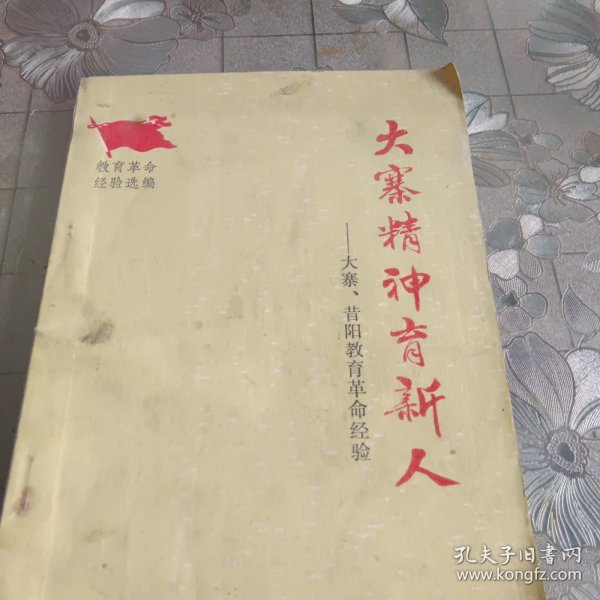 教育革命
经验选编
大寨精神育新人
——大寨、昔阳教育革命经验
孔夫子旧书网
www.kongfz.com